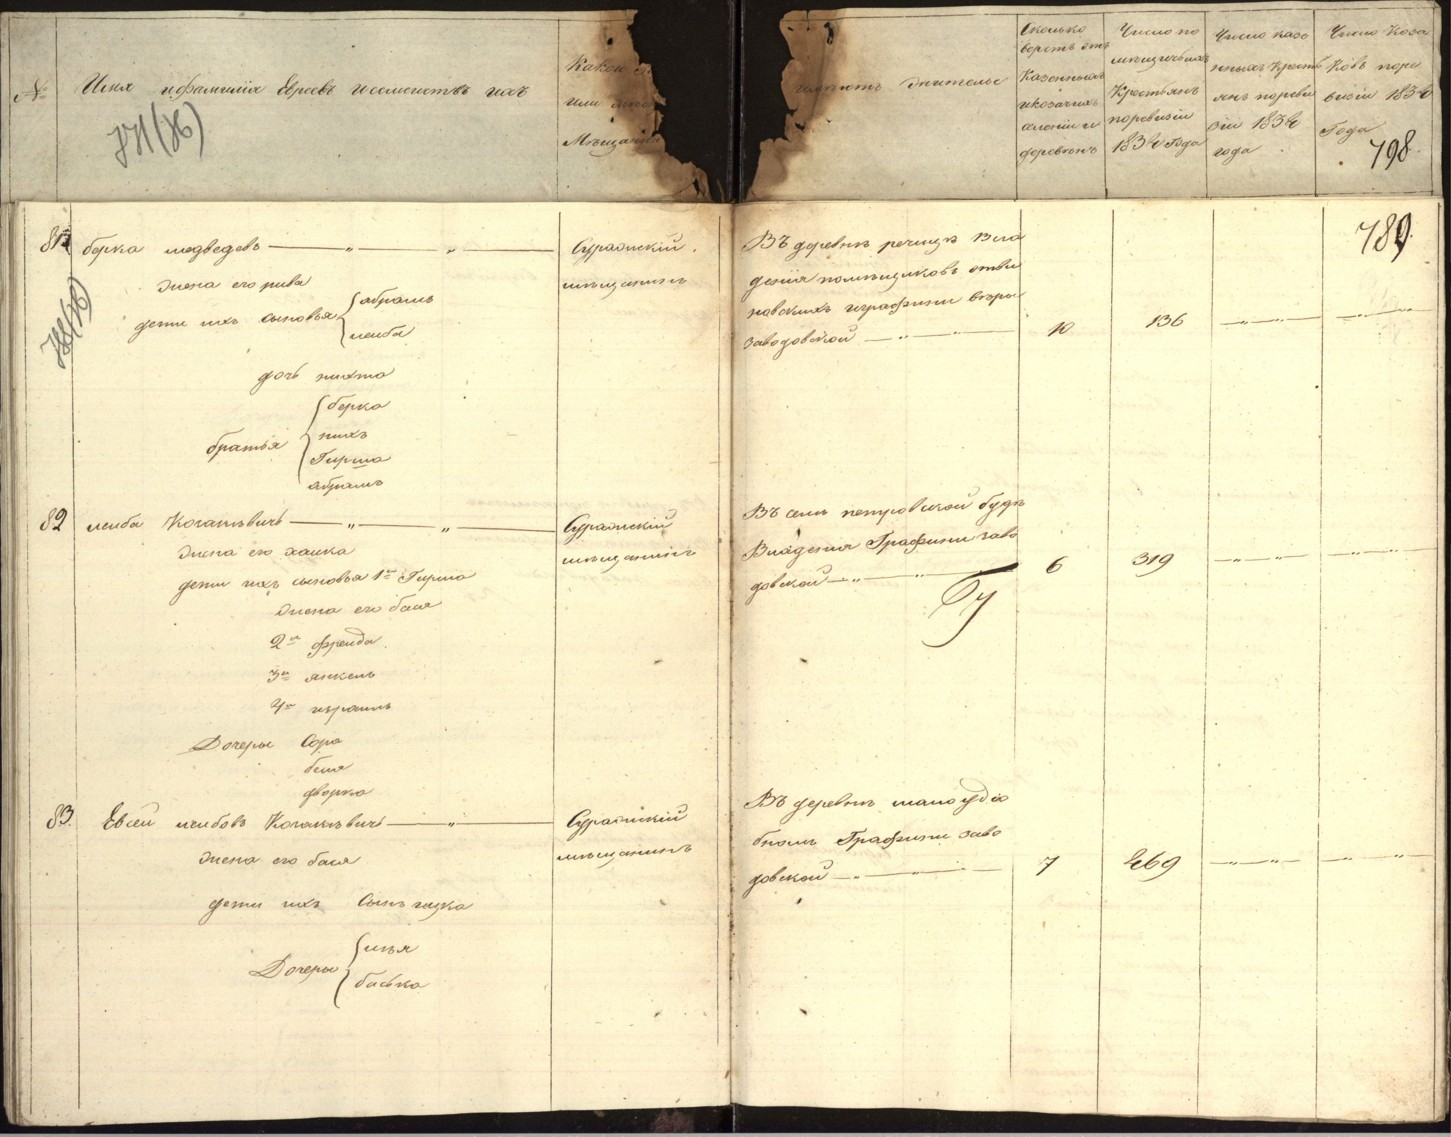 №
Имя и фамилия Евреевъ и семействъ ихъ
Какой
или
Мещанинъ
жительс
Сколько
верстъ отъ
Казенныхъ
и козачихъ
селении и
деревень
Число по
мещичьихъ
Крестьянъ
по ревизии
1834 года
Число казе
нныхъ крестъ
янъ по реви
зии 1834
года
Число Коза
ковъ по ре
визии 1834
Года
798
789
81
берка медведевъ — „ — „ —
жена его рива
дети ихъ сыновья абрамъ
лейба
дочь
братья
берка
Гирша
абрамъ
Суражский
мещанинъ
Въ деревне речице вла
дения помещиковъ
и графини веры
заводовской — „ —
10
136
— „ — „ —
— „ — „ —
82
лейба — „ — „ —
жена его хашка
дети ихъ сыновья 1й Гирша
жена его бася
2й фреида
3й янкель
4й израиль
Дочеры Сора
беля
дворка
Суражский
мещанинъ
Въ селе петровской буде
владения Графини заво
довской — „ — „ —
6
319
— „ — „ —
— „ — „ —
83
Евсей лейбовъ — „ —
жена его бася
дети ихъ сынъ ицка
Дочеры
баська
Суражский
мещанинъ
Въ деревне
Графини заво
довской — „ — „ —
7
269
— „ — „ —
— „ — „ —